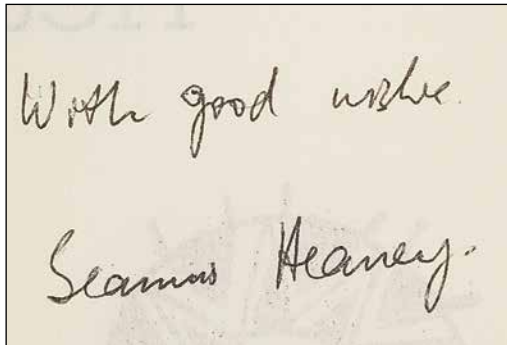 With good wishes.
Seamus Heaney.